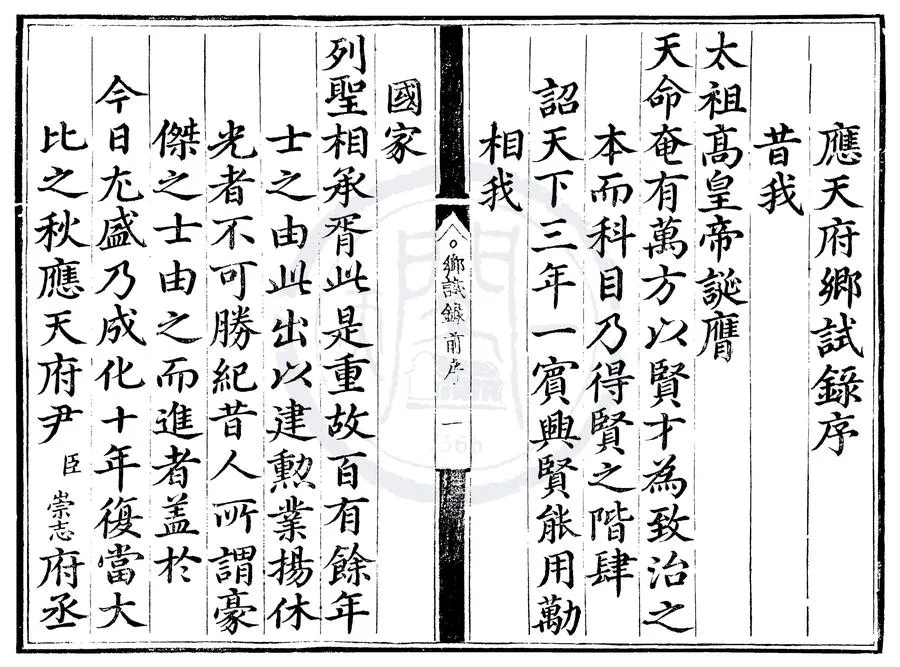 應天府鄉試錄序
昔我
太祖髙皇帝誕膺
天命奄有萬方以賢才為致治之
本而科目乃得賢之階肆
詔天下三年一賓興賢能用勸
相我
鄉試錄前序 一
國家
列聖相承胥此是重故百有餘年
士之由此出以建勲業揚休
光者不可勝紀昔人所謂豪
傑之士由之而進者盖於
今日尤盛乃成化十年復當大
比之秋應天府尹臣崇志府丞